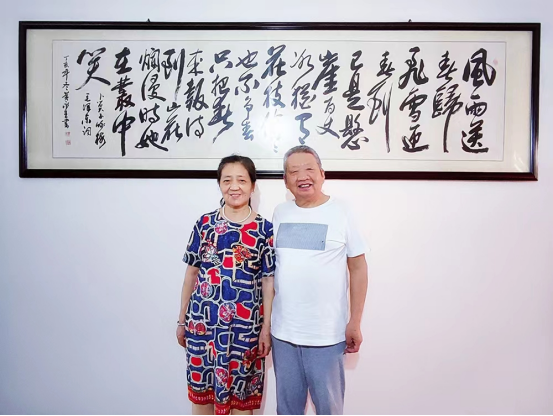 風雨送
春歸
飛雪迎
春到
已是懸
崖百丈
冰猶有
花枝俏
也不争春
只把春
來報待
到山花
爛漫時她
在叢中
笑
卜算子咏梅
毛澤東詞